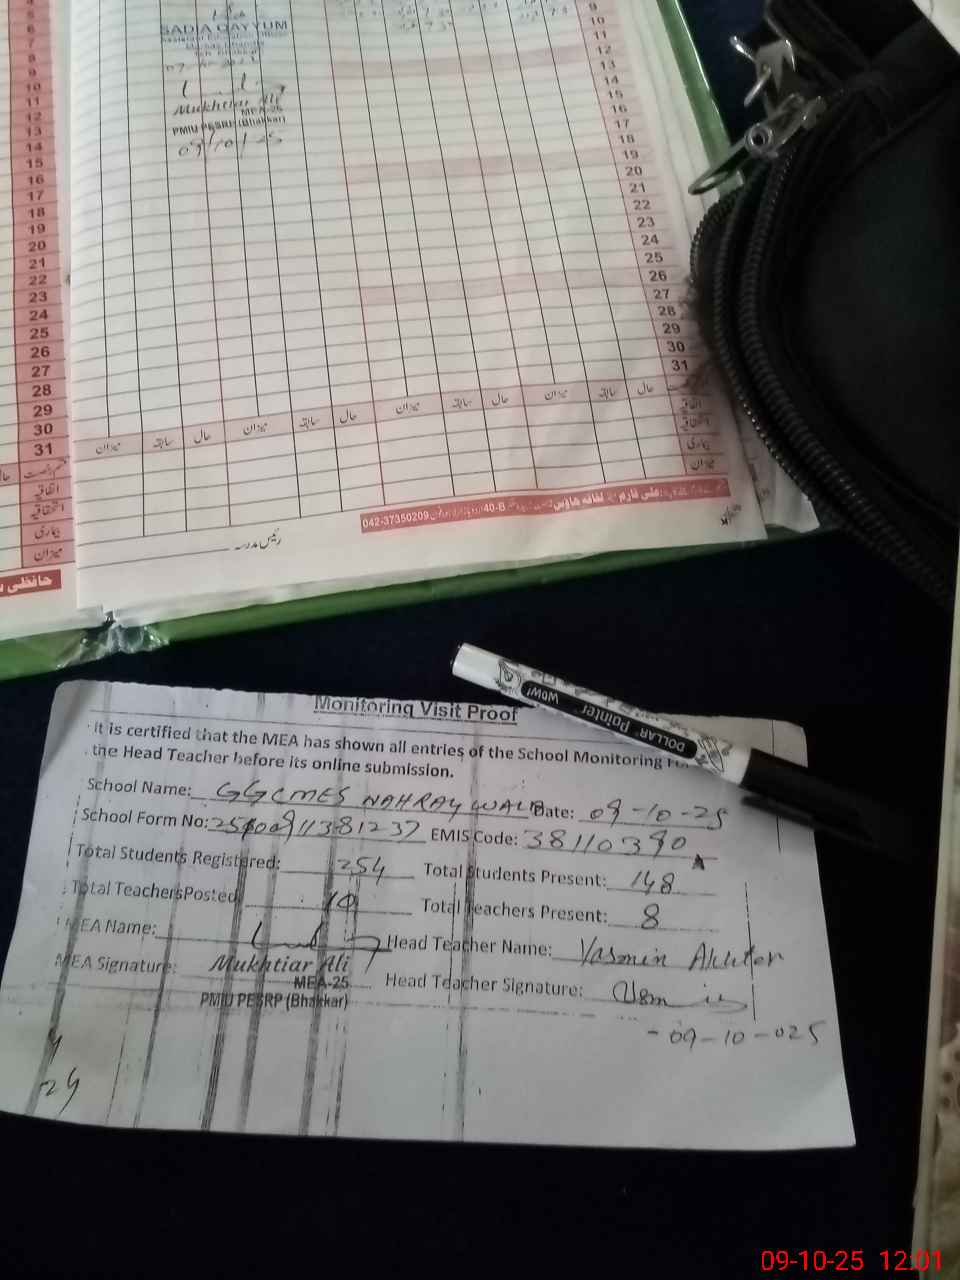 SADIA QAYYUM
Mukhtiar Ali
MEA-25
PMIU PESRP (Bhakkar)
09/10/25
9
10
11
12
13
14
15
16
17
18
19
20
21
22
23
24
25
26
27
28
29
30
31
6
7
8
9
10
11
12
13
14
15
16
17
18
19
20
21
22
23
24
25
26
27
28
29
30
31
میزان سابقہ حال میزان سابقہ حال میزان سابقہ حال میزان سابقہ حال
اتفاقیہ
استحقاقیہ
بیماری
میزان
اتفاقیہ
استحقاقیہ
بیماری
میزان
علی فارم لفافہ ہاؤس 40-B 042-37350209
رئیس مدرسہ
حافظی
WOW! Pointer DOLLAR
Monitoring Visit Proof
It is certified that the MEA has shown all entries of the School Monitoring
the Head Teacher before its online submission.
School Name: GGCMES NAHRAY WALA Date: 09-10-25
School Form No: EMIS Code: 38110390
Total Students Registered: 254 Total Students Present: 148
Total TeachersPosted 10 Total Teachers Present: 8
MEA Name: Head Teacher Name: Yasmin Akhter
MEA Signature: Mukhtiar Ali Head Teacher Signature:
MEA-25
PMIU PESRP (Bhakkar)
-09-10-025
24
09-10-25 12:01